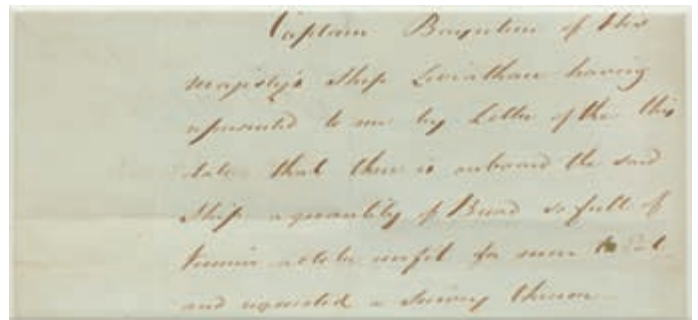 Captain Bayntun of His
Majesty's Ship Leviathan having
represented to me by Letter of the this
date that there is onboard the said
Ship a quantity of Bread so full of
Vermin as to be unfit for men to eat
and requested a Survey thereon